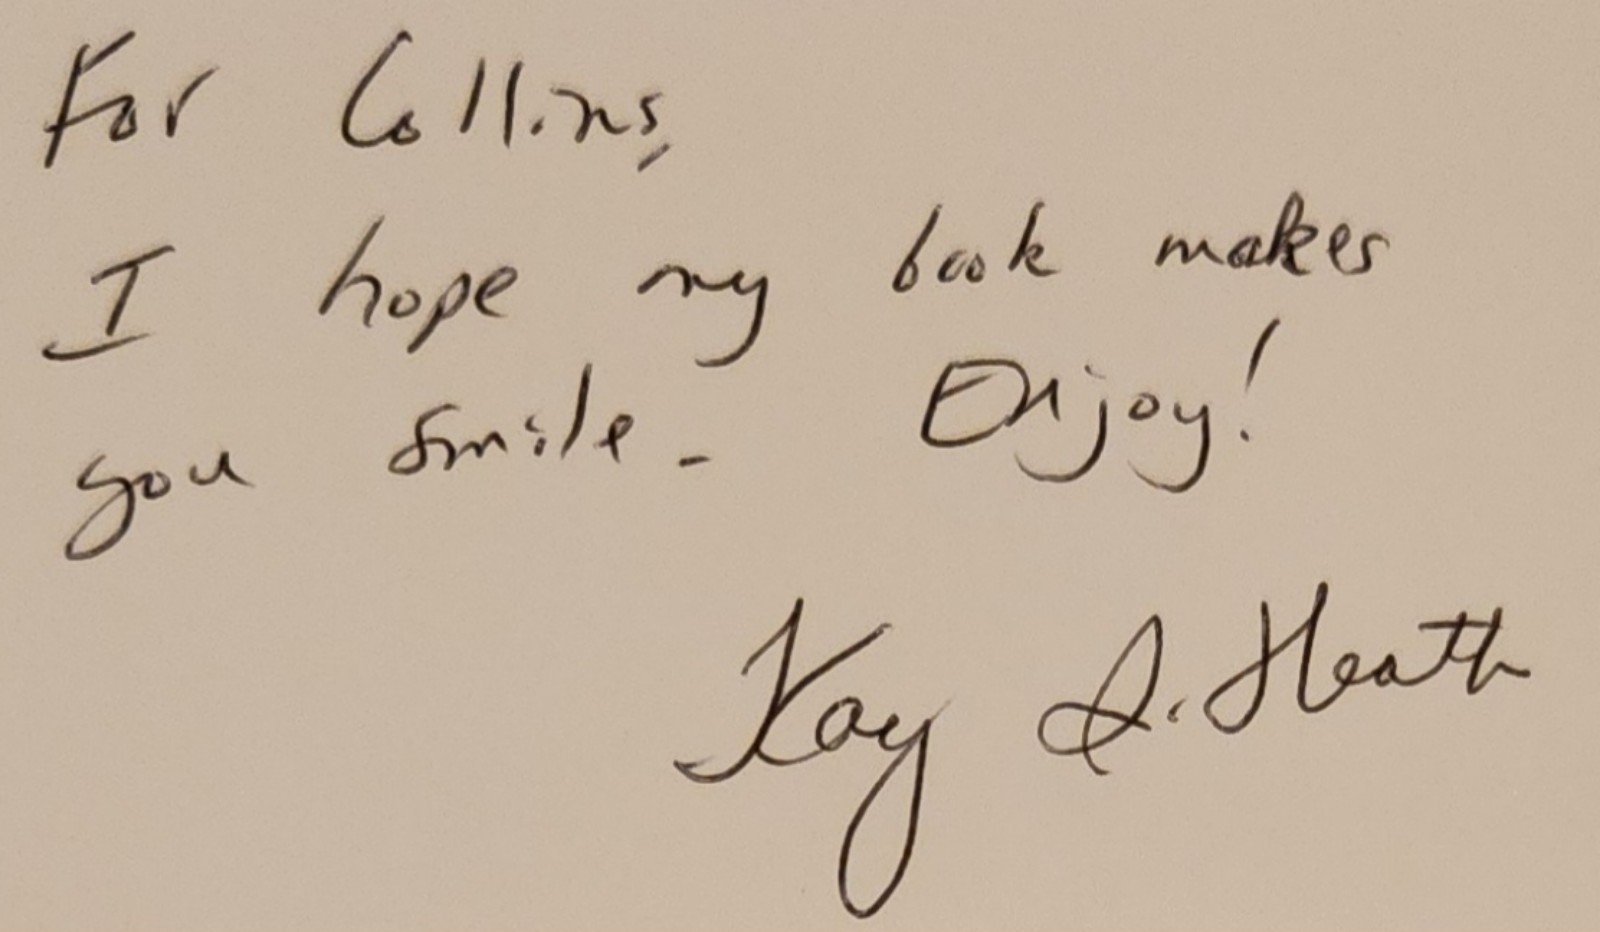 For Collins,
I hope my book makes
you smile. Enjoy!
Kay L. Heath